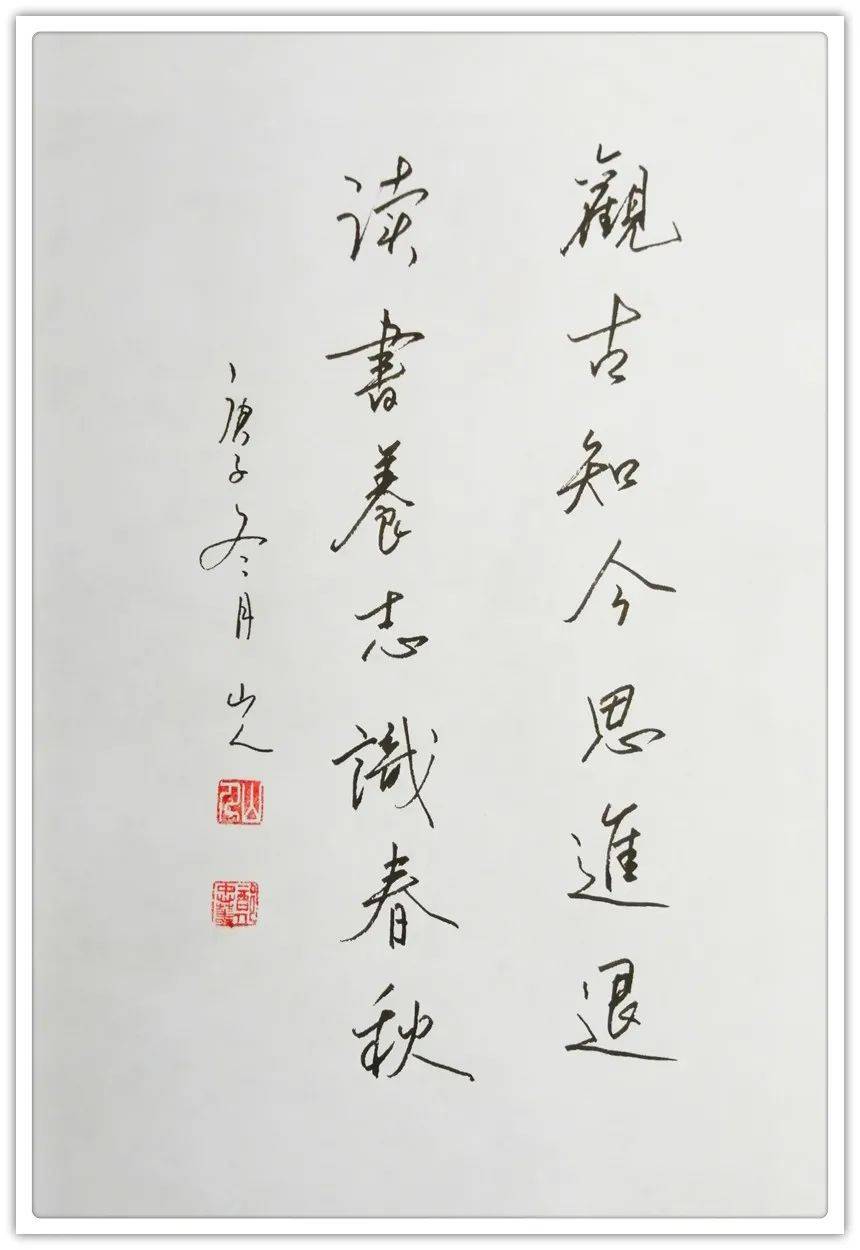 觀古知今思進退
读書養志識春秋
庚子冬月山人
山人